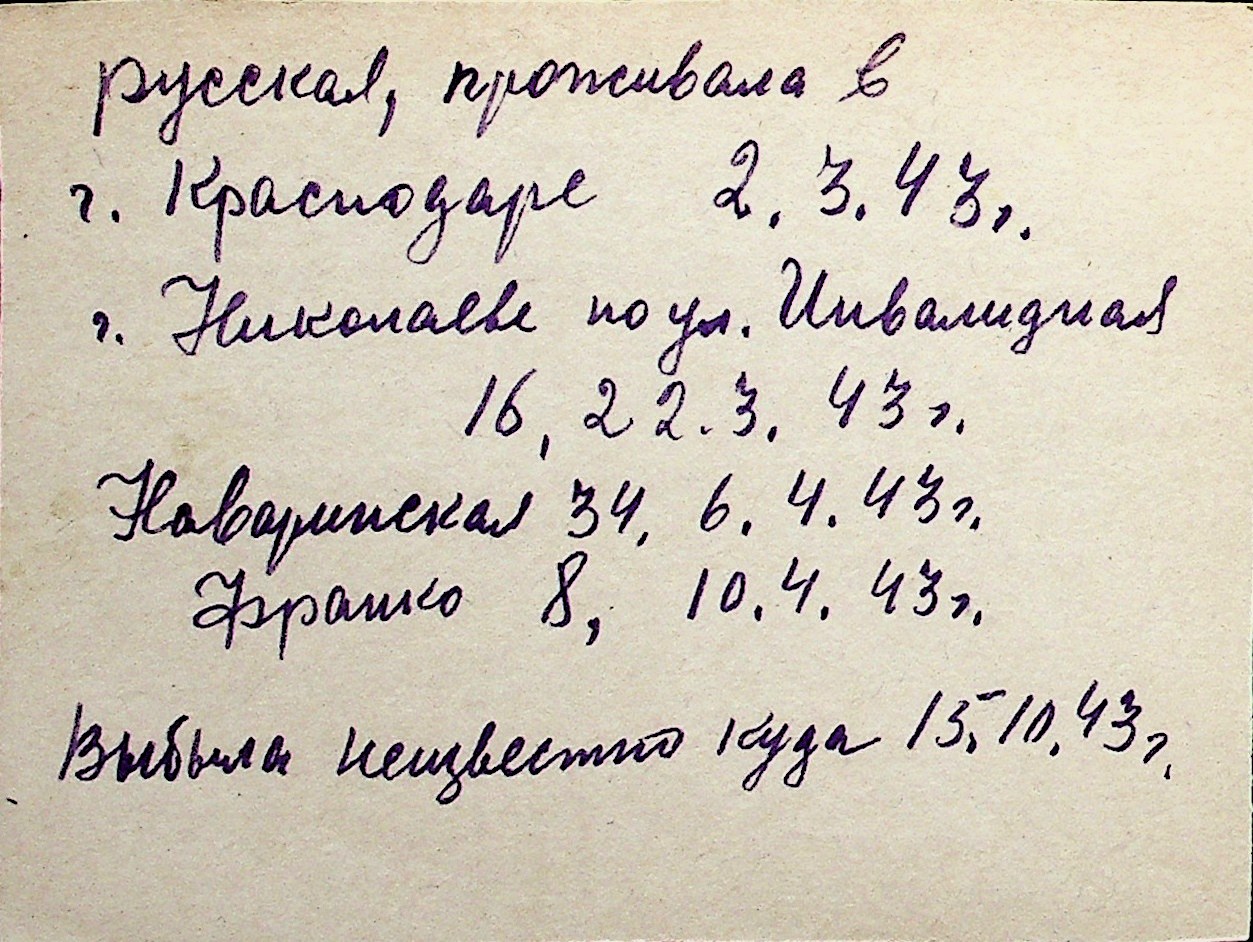 русская, проживала в
г. Краснодаре 2.3.43г.
г. Николаеве по ул. Инвалидная
16, 22.3.43г.
Наваринская 34, 6.4.43г.
Франко 8, 10.4.43г.
Выбыла неизвестно куда 15.10.43г.